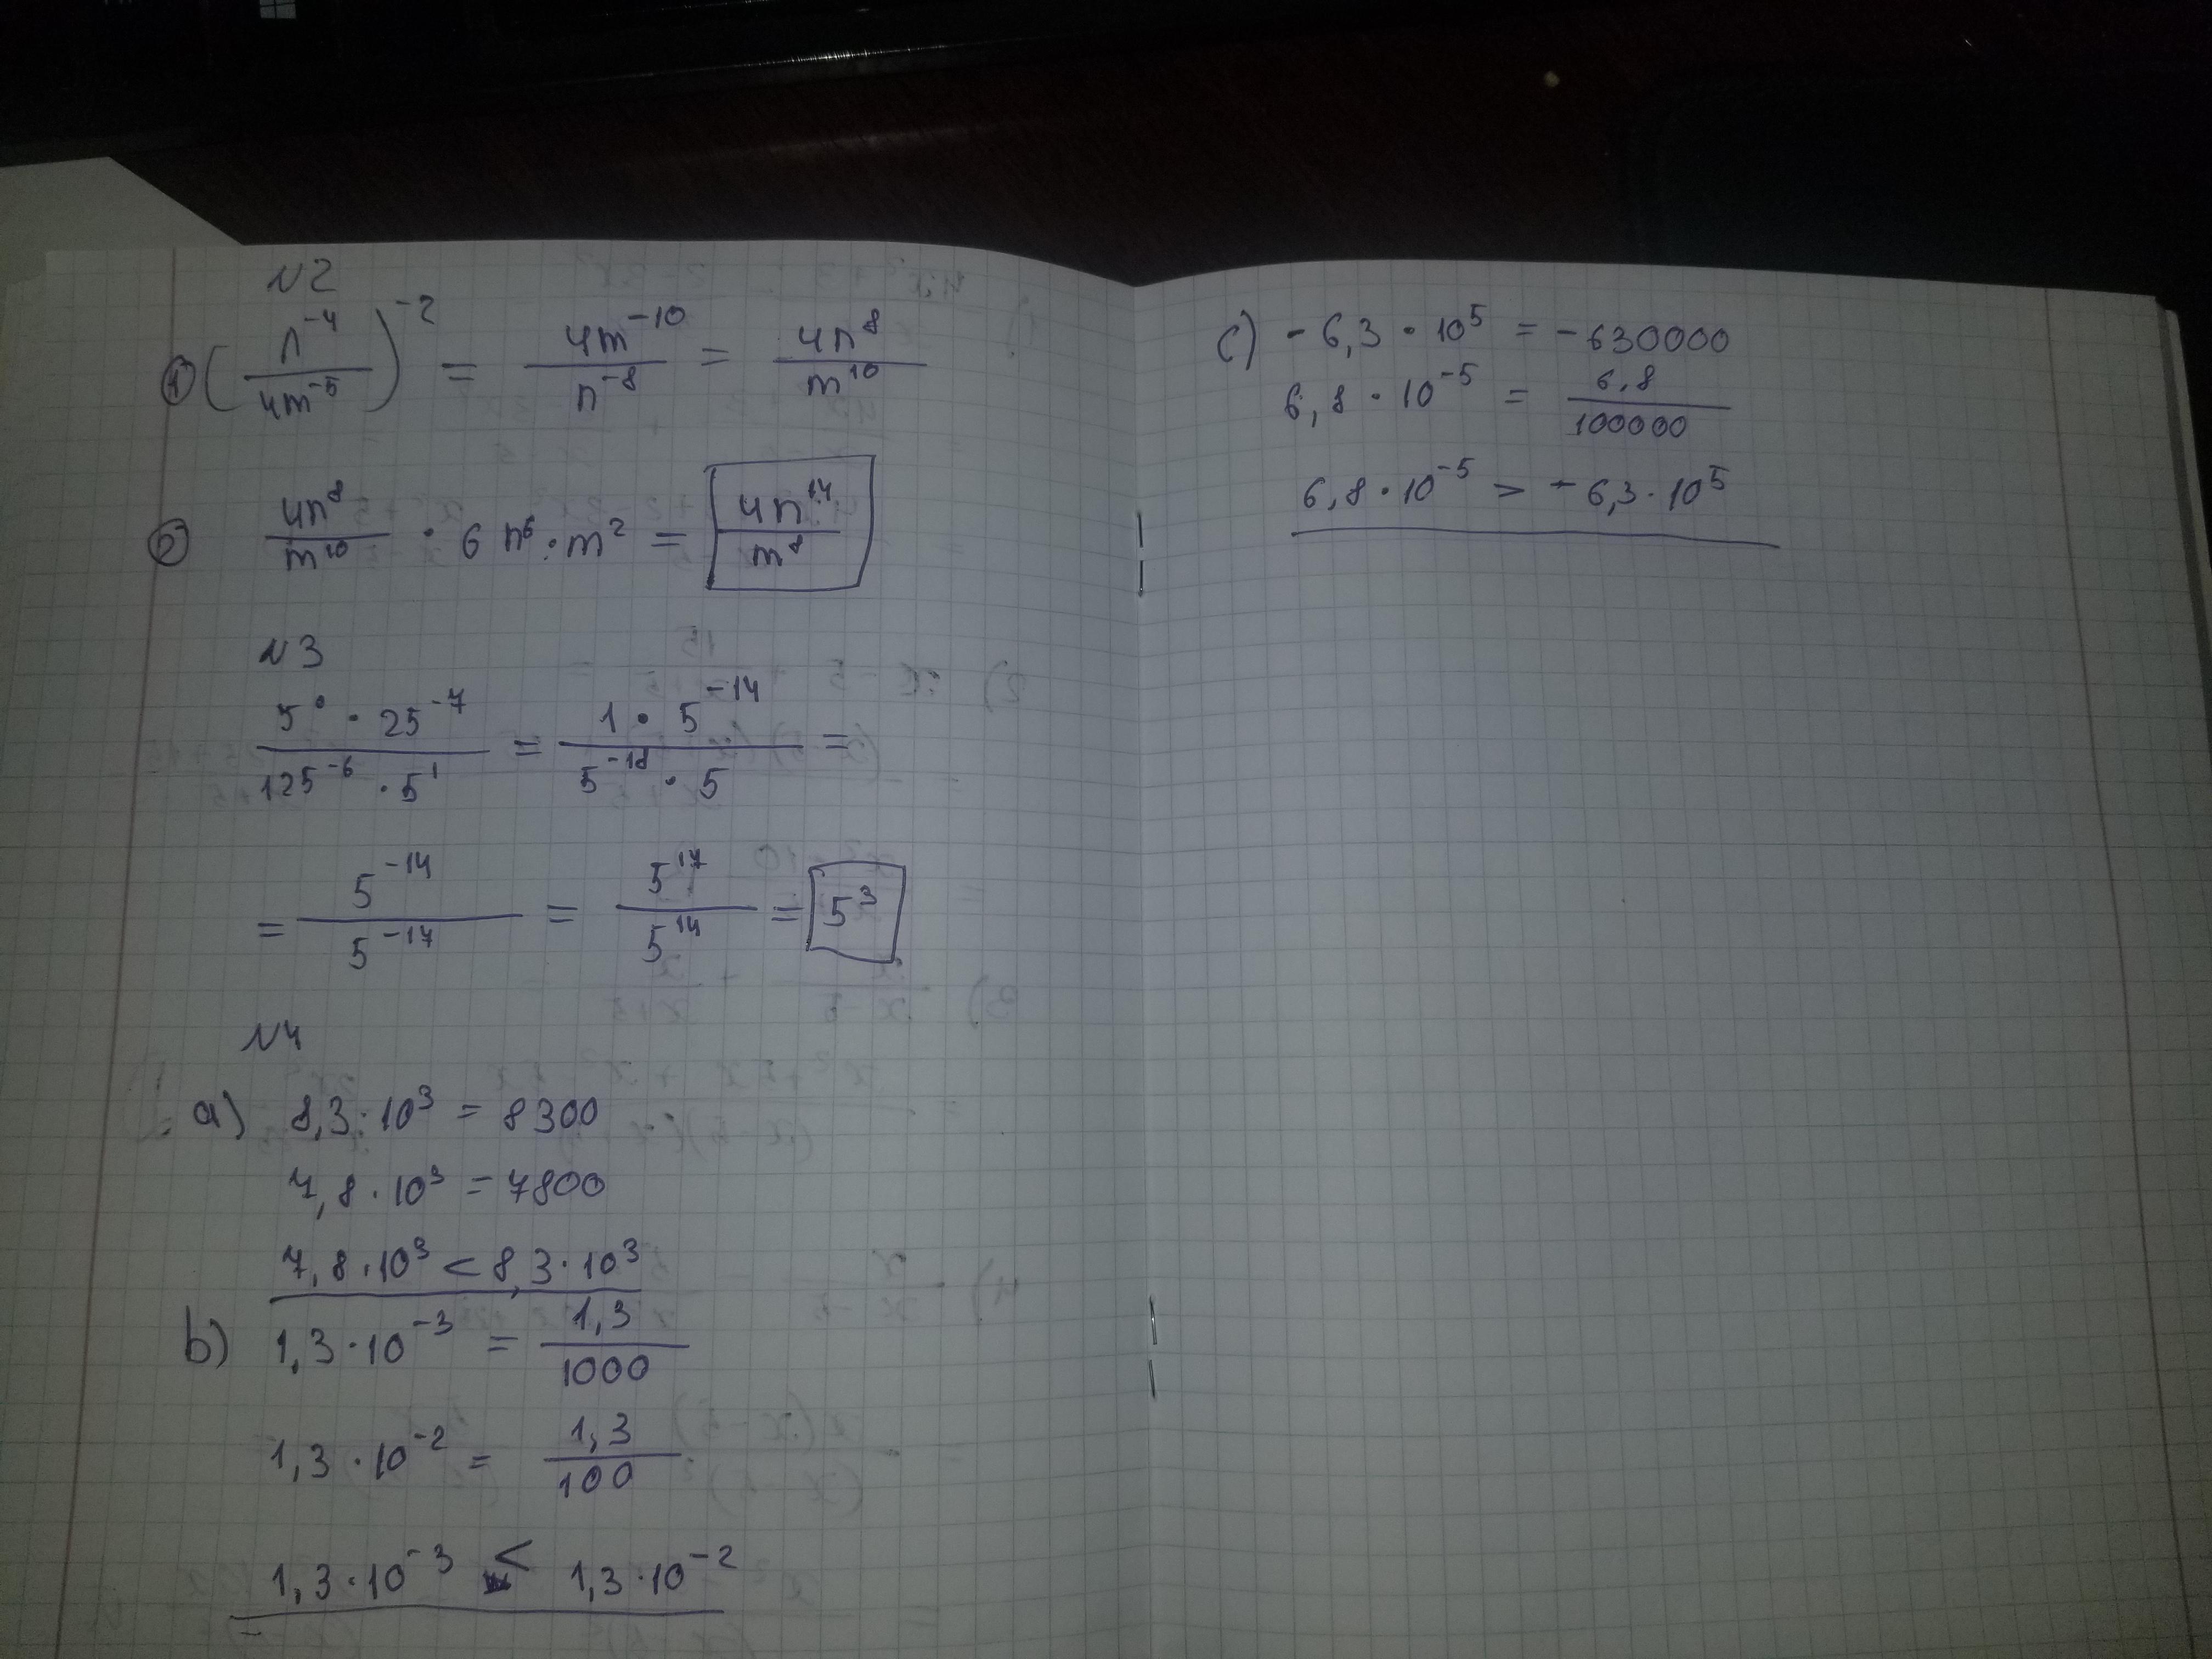 N2
① (n⁻⁴ / 4m⁻⁵)⁻² = 4m⁻¹⁰ / n⁻⁸ = 4n⁸ / m¹⁰
② 4n⁸ / m¹⁰ · 6 n⁶ · m² = 4n¹⁴ / m⁸
N3
5⁰ · 25⁻⁷ / 125⁻⁶ · 5¹ = 1 · 5⁻¹⁴ / 5⁻¹⁸ · 5 =
= 5⁻¹⁴ / 5⁻¹⁷ = 5¹⁷ / 5¹⁴ = 5³
N4
a) 8,3 · 10³ = 8300
7,8 · 10³ = 7800
7,8 · 10³ < 8,3 · 10³
b) 1,3 · 10⁻³ = 1,3 / 1000
1,3 · 10⁻² = 1,3 / 100
1,3 · 10⁻³ < 1,3 · 10⁻²
c) - 6,3 · 10⁵ = - 630000
6,8 · 10⁻⁵ = 6,8 / 100000
6,8 · 10⁻⁵ > - 6,3 · 10⁵